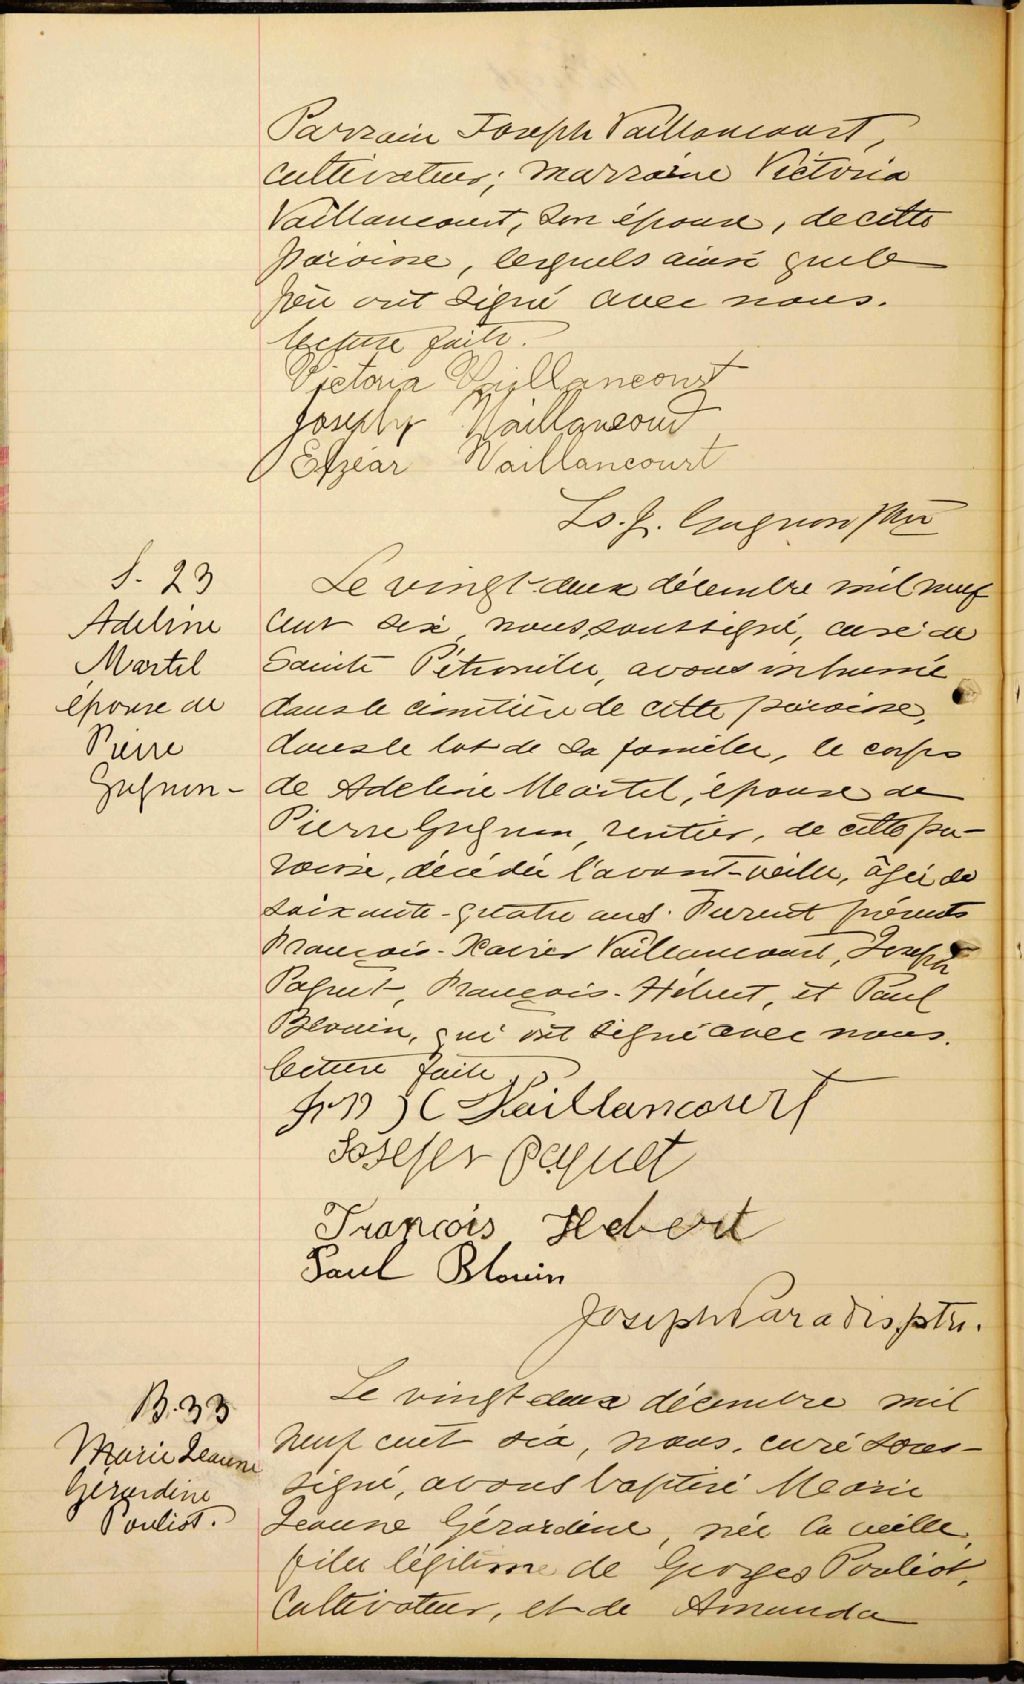 Parrain Joseph Vaillancourt,
cultivateur; marraine Victoria
Vaillancourt, son épouse, de cette
paroisse, lesquels ainsi que le
père ont signé avec nous.
lecture faite.
Victoria Vaillancourt
Joseph Vaillancourt
Elzéar Vaillancourt
Ls. J. Gagnon ptre
S. 23
Adeline
Martel
épouse de
Pierre
Gagnon-
Le vingt-deux décembre mil neuf
cent six, nous, soussigné, curé de
Sainte Pétronille, avons inhumé
dans le cimetière de cette paroisse,
dans le lot de la famille, le corps
de Adeline Martel, épouse de
Pierre Gagnon, rentier, de cette pa-
roisse, décédée l'avant-veille, âgée de
soixante-quatre ans. Furent présents
François-Xavier Vaillancourt, Joseph
Paquet, François-Hébert, et Paul
Blouin, qui ont signé avec nous.
lecture faite
Frs X Vaillancourt
Joseph Paquet
François Hebert
Paul Blouin
Joseph Paradis, ptre.
B. 33
Marie Jeanne
Gérardine
Pouliot.
Le vingt deux décembre mil
neuf cent six, nous, curé sous-
signé, avons baptisé Marie
Jeanne Gérardine, née la veille,
fille légitime de Georges Pouliot,
cultivateur, et de Amanda